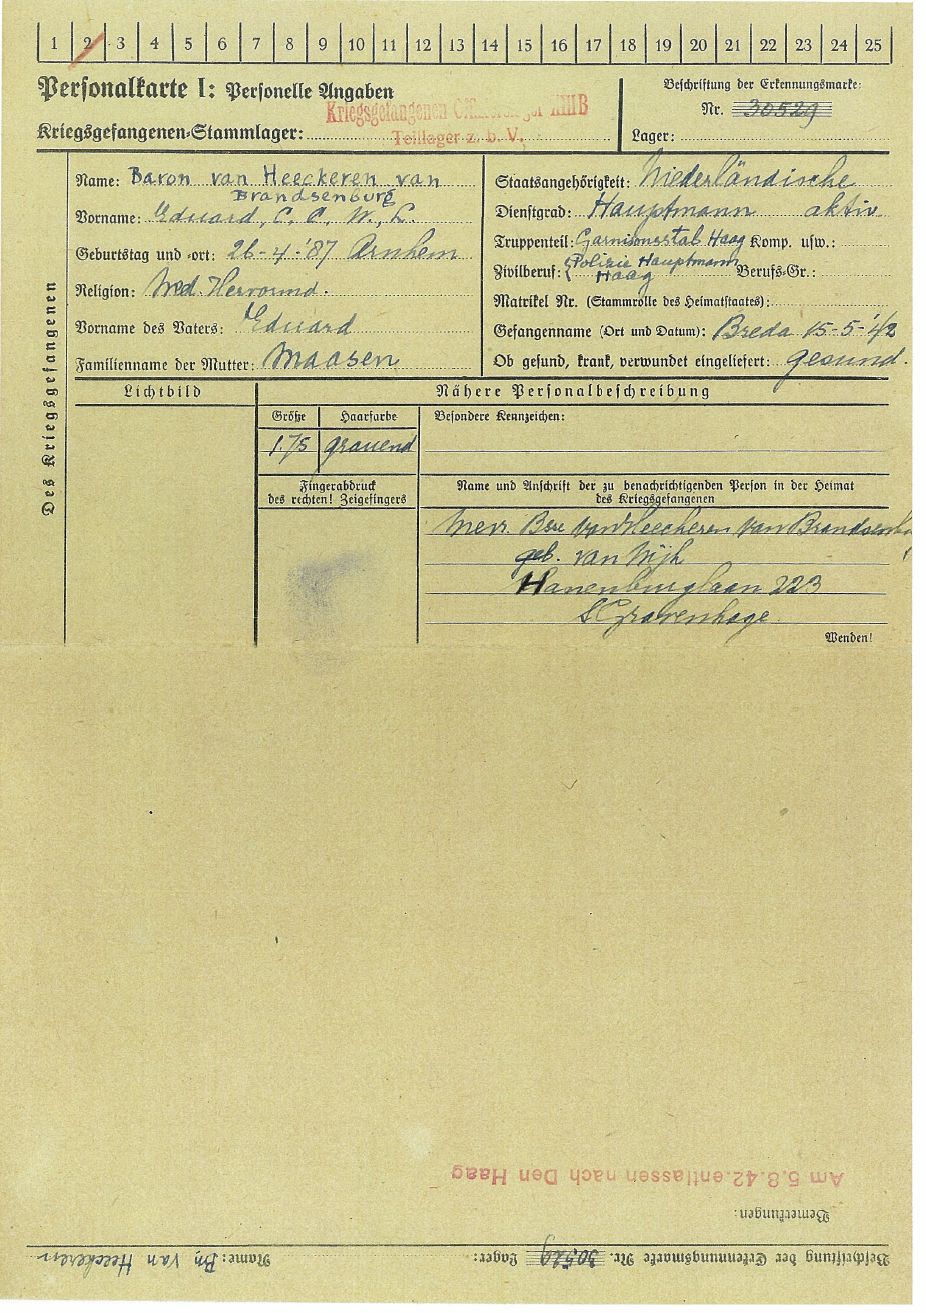 1 2 3 4 5 6 7 8 9 10 11 12 13 14 15 16 17 18 19 20 21 22 23 24 25
Personalkarte I: Personelle Angaben
Beschriftung der Erkennungsmarke:
Kriegsgefangenen XIII B
Nr. 30529
Kriegsgefangenen-Stammlager: Teillager z. b. V.
Lager:
Des Kriegsgefangenen
Name: Baron van Heeckeren van
Brandsenburg
Vorname: Eduard, C. C. W. L.
Geburtstag und -ort: 26-4-'87 Arnhem
Religion: Ned. Hervormd.
Vorname des Vaters: Eduard
Familienname der Mutter: Maasen
Staatsangehörigkeit: Niederländische
Dienstgrad: Hauptmann aktiv
Truppenteil: Garnisonsstab Haag Komp. usw.:
Zivilberuf: Polizie Hauptmann
Haag Berufs-Gr.:
Matrikel Nr. (Stammrolle des Heimatstaates):
Gefangenname (Ort und Datum): Breda 15-5-'42
Ob gesund, krank, verwundet eingeliefert: gesund.
Lichtbild
Nähere Personalbeschreibung
Größe Haarfarbe Besondere Kennzeichen:
1.75 grauend
Fingerabdruck
des rechten! Zeigefingers
Name und Anschrift der zu benachrichtigenden Person in der Heimat
des Kriegsgefangenen
Mevr. Bsse van Heeckeren van
geb. van
Hanenburglaan 223
s Gravenhage
Wenden!
Am 5.8.42 entlassen nach Den Haag
Bemerkungen:
Beschriftung der Erkennungsmarke Nr. 30529 Lager: Name: Bn van Heeckeren